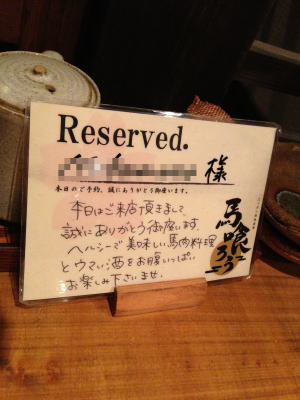 Reserved.
様
本日のご予約、誠にありがとう御座います。
本日はご来店頂きまして
誠にありがとう御座います。
ヘルシーで美味しい馬肉料理
とウマい酒をお腹いっぱい
お楽しみ下さいませ。
馬喰ろう